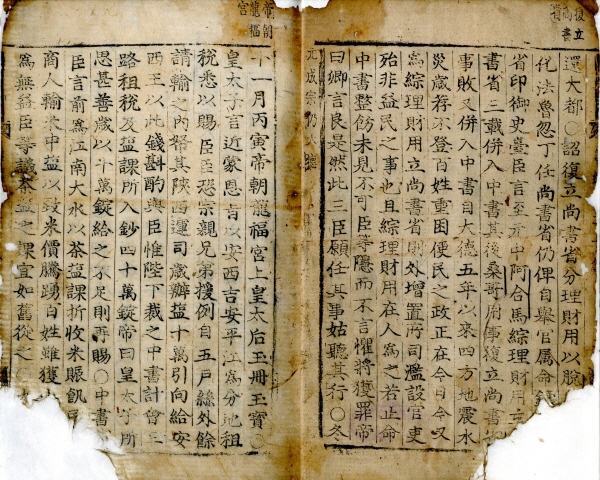 復立尚書省
還大都○詔復立尚書省分理財用以脫
化法魯忽丁任尚書省仍俾自舉官屬命鑄
省印御史臺臣言至元中阿合馬綜理財用立
書省三載併入中書其後桑哥用事復立尚書省
事敗又併入中書自大德五年以來四方地震水
災歲荐不登百姓重困便民之政正在今日今又
爲綜理財用立尚書省則外增置所司濫設官吏
殆非益民之事也且綜理財用在人爲之若止命
中書整飭未見不可臣等隱而不言懼將獲罪帝
曰卿言良是然此三臣願任其事姑聽其行○冬
元成宗
帝朝龍福宮
十一月丙寅帝朝龍福宮上皇太后玉冊玉寶○
皇太子言近蒙恩旨以安西吉安平江爲分地租
稅悉以賜臣臣恐宗親兄弟援例自五戶絲外餘
請輸之內帑其陝西運司歲辦鹽十萬引向給安
西王以此錢斟酌與臣惟陛下裁之中書計會三
路租稅及鹽課所入鈔四十萬錠帝曰皇太子所
思甚善歲以十萬錠給之不足則再賜○中書
臣言前爲江南大水以茶鹽課折收米賑飢
商人輸米中鹽以致米價騰踴百姓雖獲
爲無益臣等議茶鹽之課宜如舊從之○